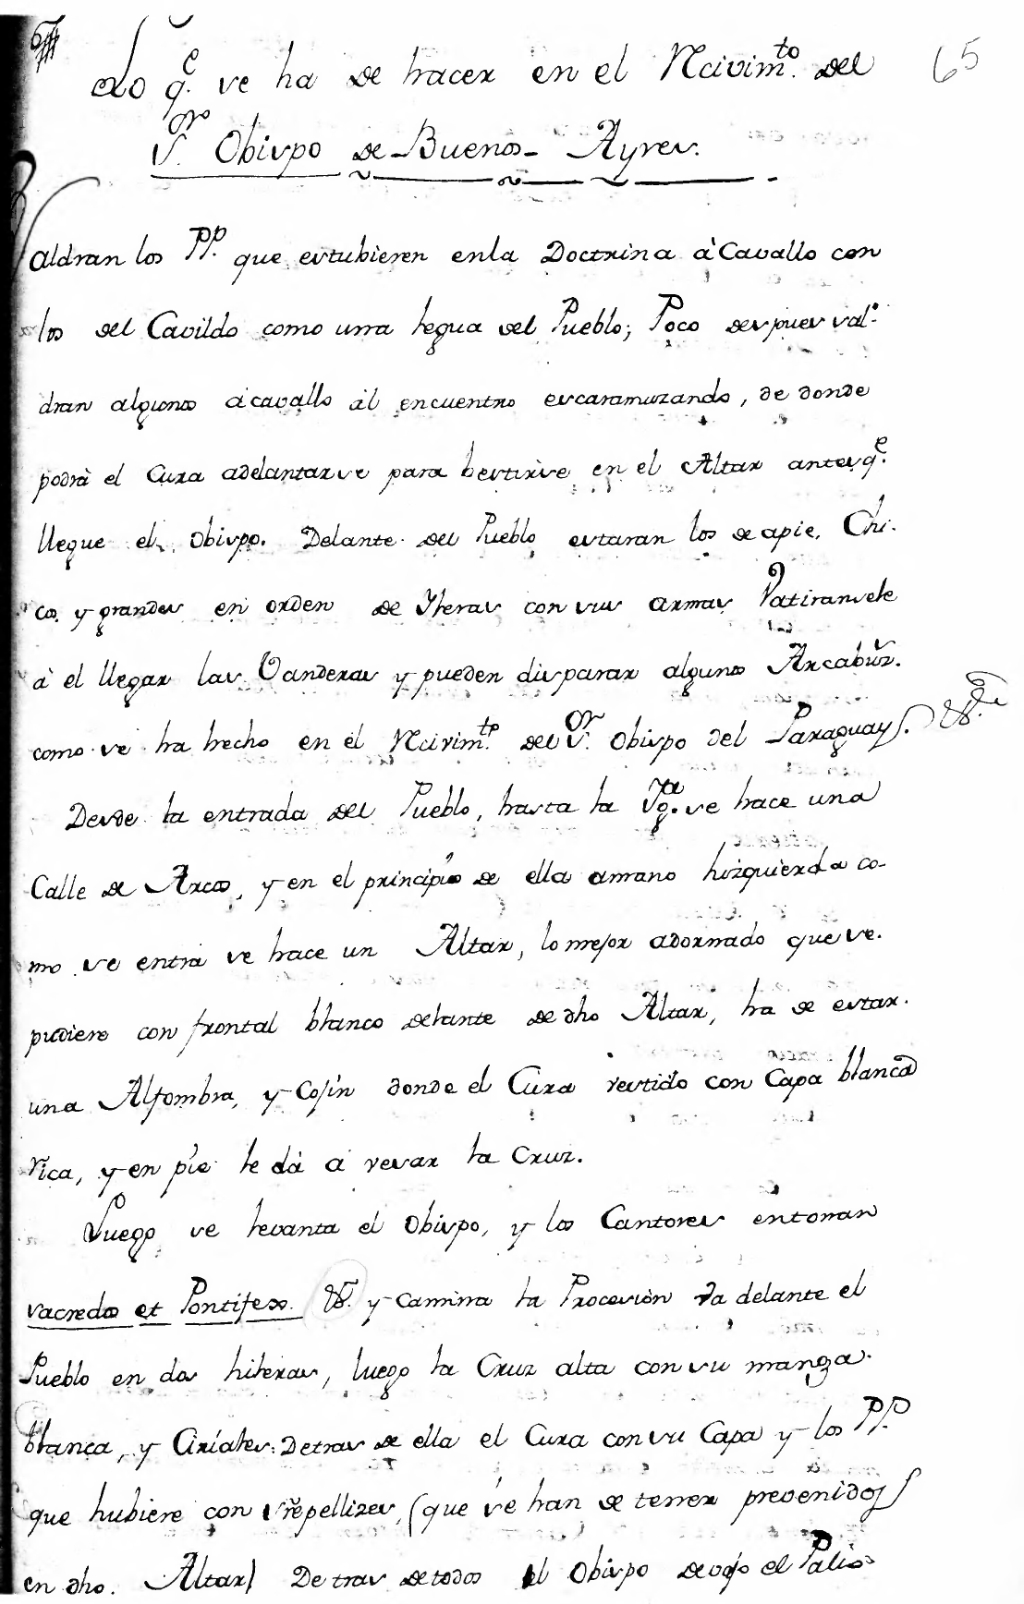 65
Lo q.e se ha de hacer en el Rcivim.to del
S.or Obispo de Buenos Ayres.
Saldran los PP. que estubieren enla Doctrina à Cavallo con
los del Cavildo como una legua del Pueblo; Poco despues sal-
dran algunos à cavallo àl encuentro escaramuzando, de donde
podrà el Cura adelantarse para bestirse en el Altar antes q.e
llegue el Obispo. Delante del Pueblo estaran los de apie, Chi-
cos y grandes en orden de Yleras con sus armas
à el llegar las Vanderas y pueden disparar algunos Arcabuz.s
como se ha hecho en el Rcivim.to del S.or Obispo del Paraguay
Desde la entrada del Pueblo, hasta la Yg.a se hace una
Calle de Arcos, y en el principio de ella amano hizquierda co-
mo se entra se hace un Altar, lo mejor adornado que se
pudiere con frontal blanco delante de dho Altar, ha de estar
una Alfombra, y Cojin donde el Cura vestido con Capa blanca
rica, y en pie le dà à vesar la Cruz.
Luego se levanta el Obispo, y los Cantores entonan
sacredos et Pontifex. &. y camina la Procesiòn va delante el
Pueblo en dos hileras, luego la Cruz alta con su manga
blanca, y Ciriales: Detras de ella el Cura con su Capa y los PP.
que hubiere con Sñrepellizes, (que se han de tener prevenidos
en dho. Altar) Detras de todos el Obispo devajo el Palio